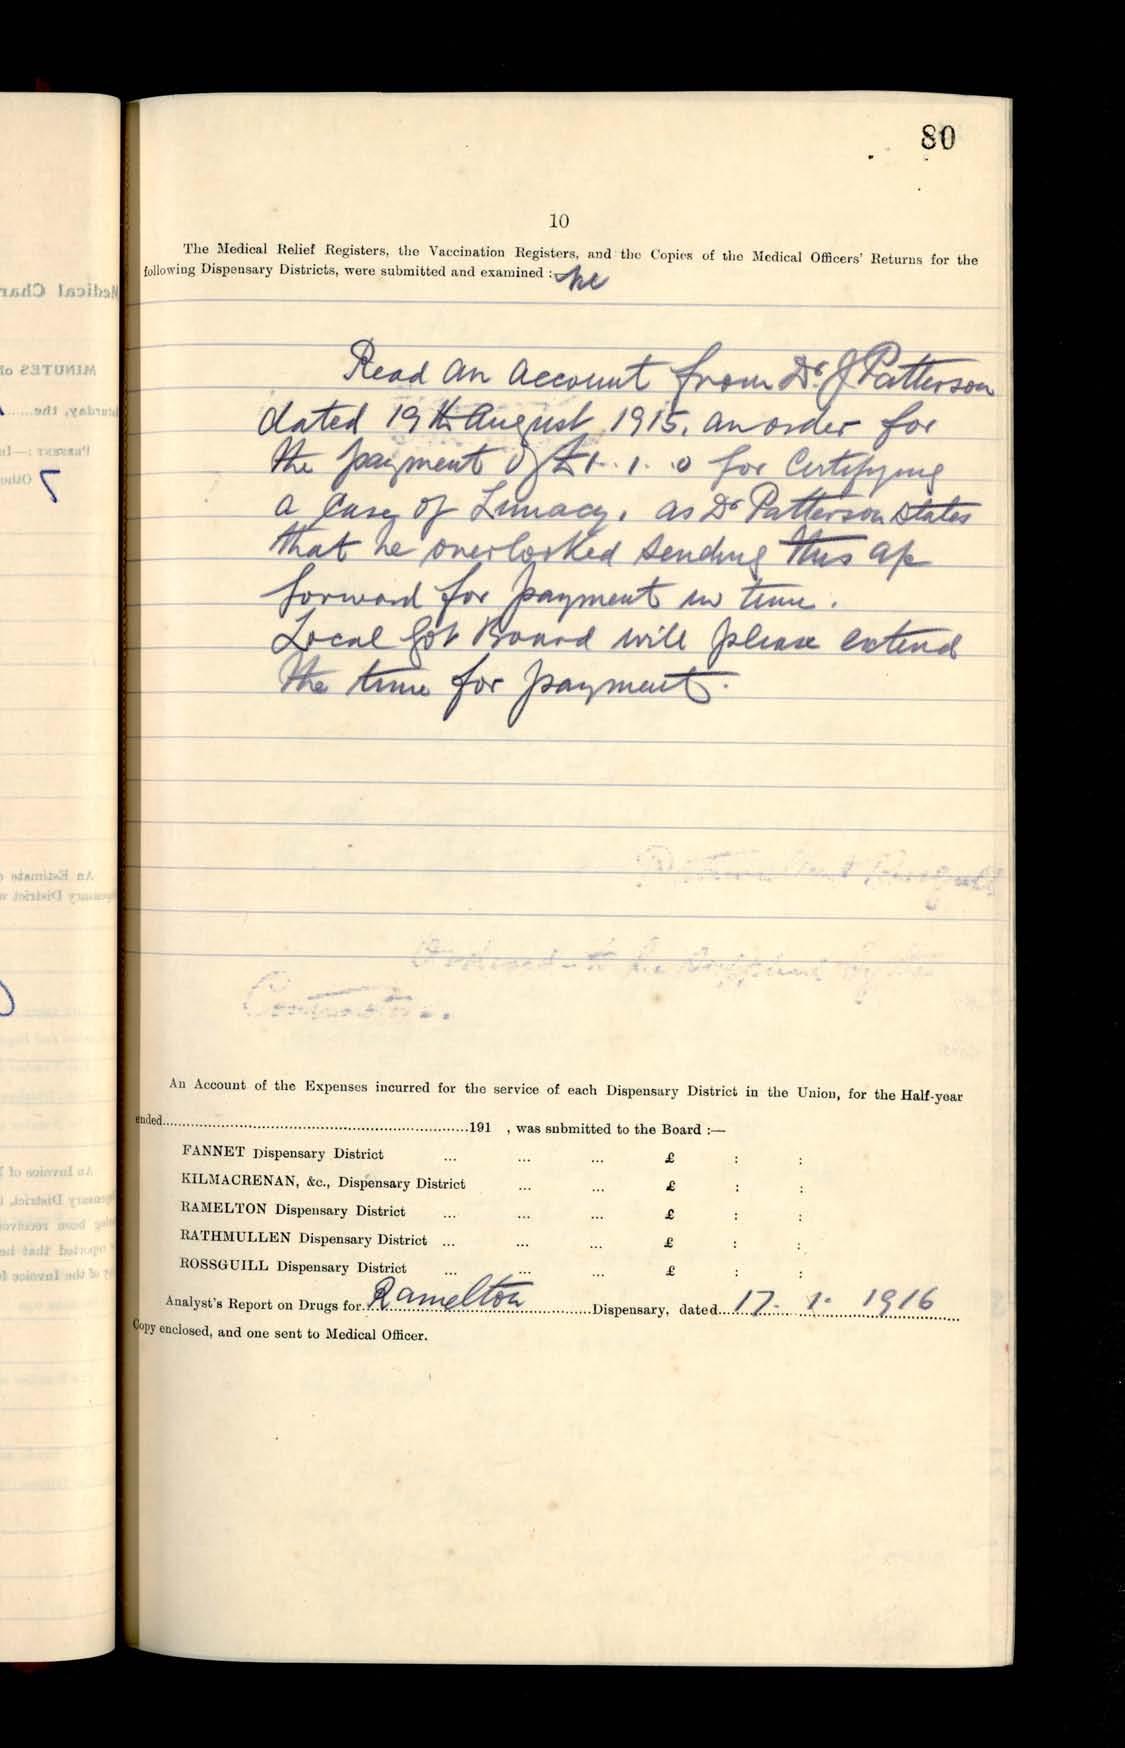 80
10
The Medical Relief Registers, the Vaccination Registers, and the Copies of the Medical Officers' Returns for the
following Dispensary Districts, were submitted and examined :—
Read an account from Dr. J Patterson
dated 19th August 1915. an order for
the payment of £1. 1. 0 for Certifying
a Case of Lunacy. as Dr Patterson states
that he overlooked sending this a/c
forward for payment in time.
Local Govt Board will please extend
the time for payment.
Ordered to be supplied by the
Contractor.
An Account of the Expenses incurred for the service of each Dispensary District in the Union, for the Half-year
ended..........191 , was submitted to the Board :—
FANNET Dispensary District ... ... ... £ : :
KILMACRENAN, &c., Dispensary District ... ... £ : :
RAMELTON Dispensary District ... ... ... £ : :
RATHMULLEN Dispensary District ... ... ... £ : :
ROSSGUILL Dispensary District ... ... ... £ : :
Analyst's Report on Drugs for Ramelton Dispensary, dated 17. 1. 1916
Copy enclosed, and one sent to Medical Officer.